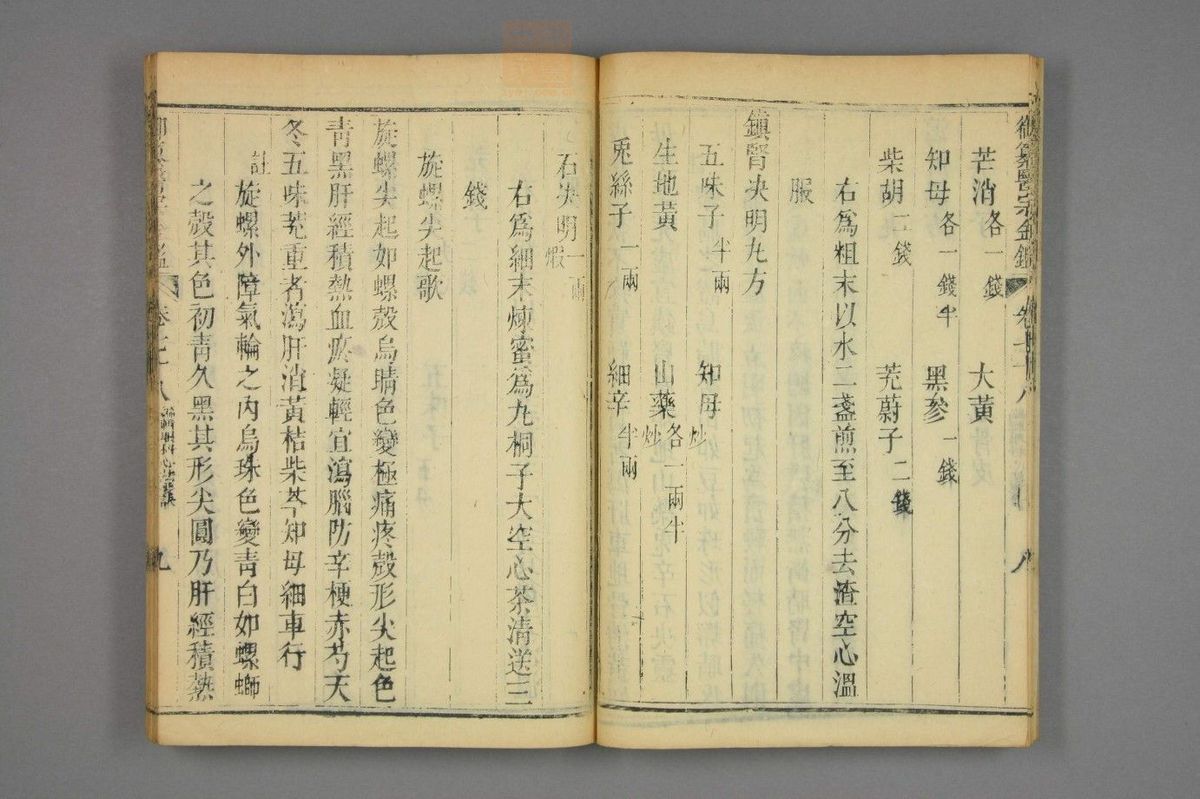 御纂醫宗金鑑 卷七十八 八
芒消各一錢 大黃
知母各一錢半 黑參一錢
柴胡二錢 茺蔚子二錢
右為粗末以水二盞煎至八分去渣空心溫
服
鎮腎决明丸方
五味子半兩 知母炒
生地黃 山藥炒各一兩半
兎絲子一兩 細辛半兩
石决明一兩煅
右為細末煉蜜為丸桐子大空心茶清送三
錢
旋螺尖起歌
旋螺尖起如螺殻烏睛色變極痛疼殻形尖起色
青黑肝經積熱血瘀凝輕宜瀉腦防辛梗赤芍天
冬五味茺重者瀉肝消黃桔柴芩知母細車行
註
旋螺外障氣輪之內烏珠色變青白如螺螄
之殻其色初青久黑其形尖圓乃肝經積熱
卷七十八 九